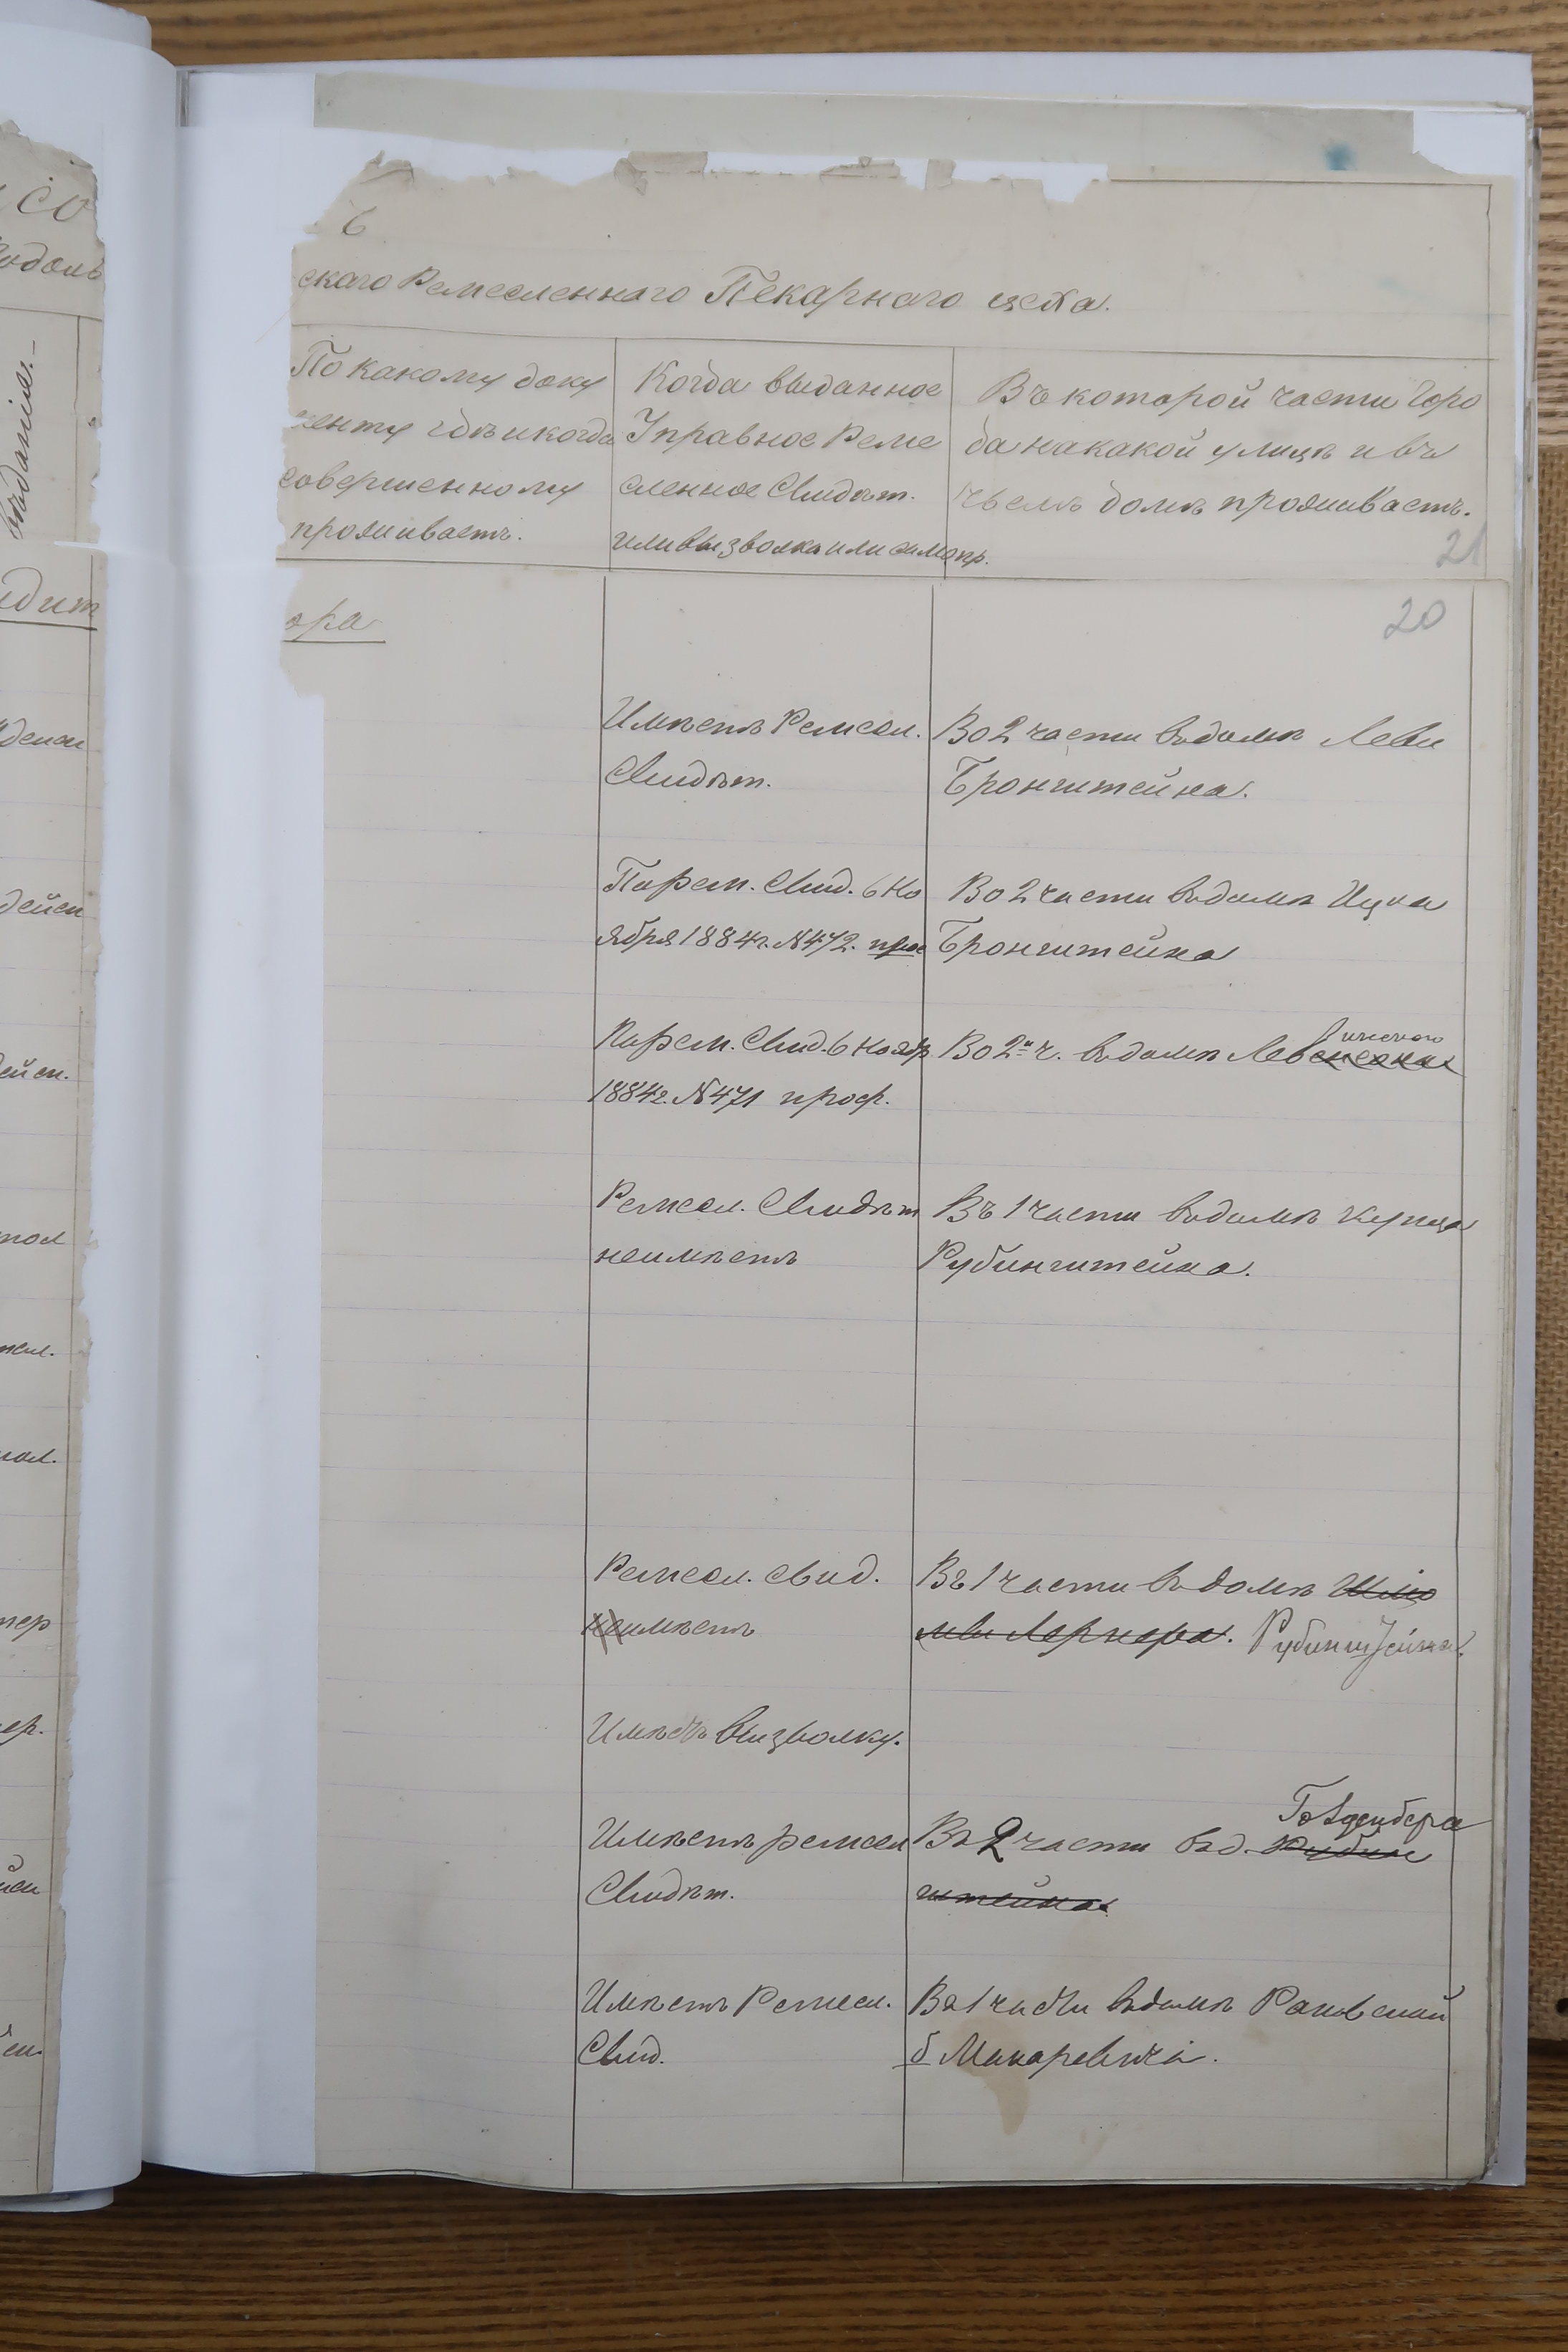 6
скаго Ремесленнаго Пекарнаго цеха.
По какому доку
менту гдѣ и когда
совершенному
проживаетъ.
Когда выданное
Управное Реме
сленное Свидѣт.
или вызволка или самопр.
Въ которой части Горо
да на какой улицѣ и въ
чьемъ домѣ проживаетъ.
21
20
ора
Имѣетъ Ремесл.
Свидѣт.
Во 2 части въ домѣ Леви
Бронштейна.
Парем. Свид. 6 Но
ября 1884 г. № 472. проф
Во 2 части въ домѣ Ицка
Бронштейна
Парем. Свид. 6 Ноябр
1884 г. № 471 проф.
Во 2й ч. въ домѣ
Ремесл. Свидѣт
неимѣетъ
Въ 1 части въ домѣ купца
Рубинштейна.
Ремесл. свид.
неимѣетъ
Въ 1 части въ домѣ Шлио
мы Лернера. Рубинштейна.
Имѣетъ вызволку.
Имѣетъ ремесл
Свидѣт.
Во 2 части въ д. Рубин
штейна
Имѣетъ Ремесл.
Свид.
Въ 1 части въ домѣ
б Макаревича.